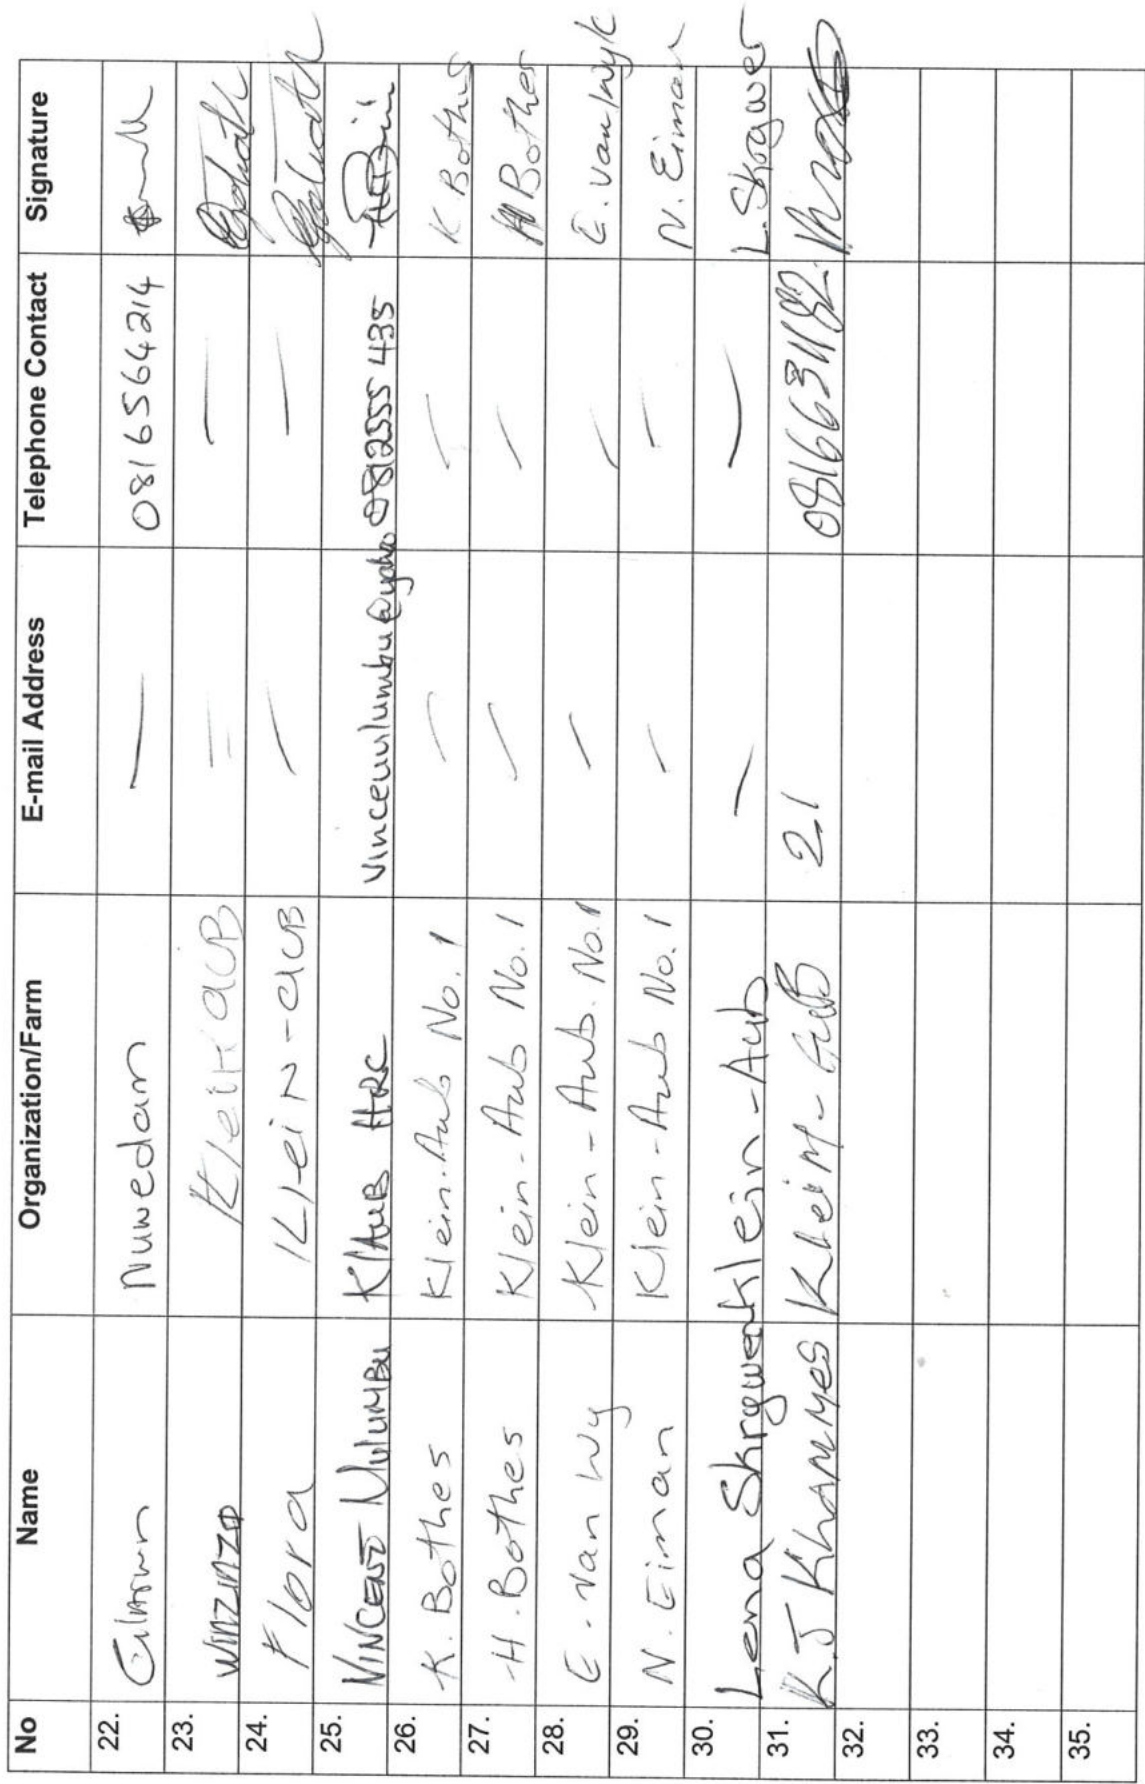 No Name Organization/Farm E-mail Address Telephone Contact Signature
22. Nuwedam — 0816564214
23. WINZIZO Klein aUB = —
24. Flora Klein-aUB — —
25. VINCENT MULUMBU K/AUB HRC 0812555435
26. K. Bothes Klein-Aub No. 1 — — K Bothes
27. H. Bothes Klein-Aub No. 1 — — H Bothes
28. E. Van Wy Klein-Aub. No. 1 — — E. Van Wyk
29. N. Eiman Klein-Aub No. 1 — — N. Eiman
30. Lena Klein-Aub — —
31. K.J Khammes Klein-AUB 2.1
32.
33.
34.
35.